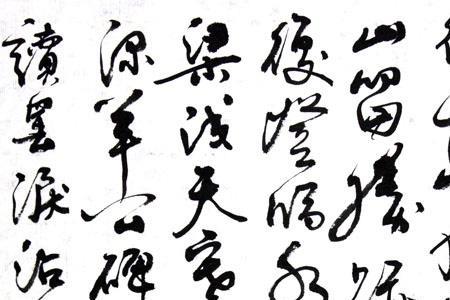 山留勝跡
復登臨水
梁淺天寒
深羊公碑
讀罷淚沾